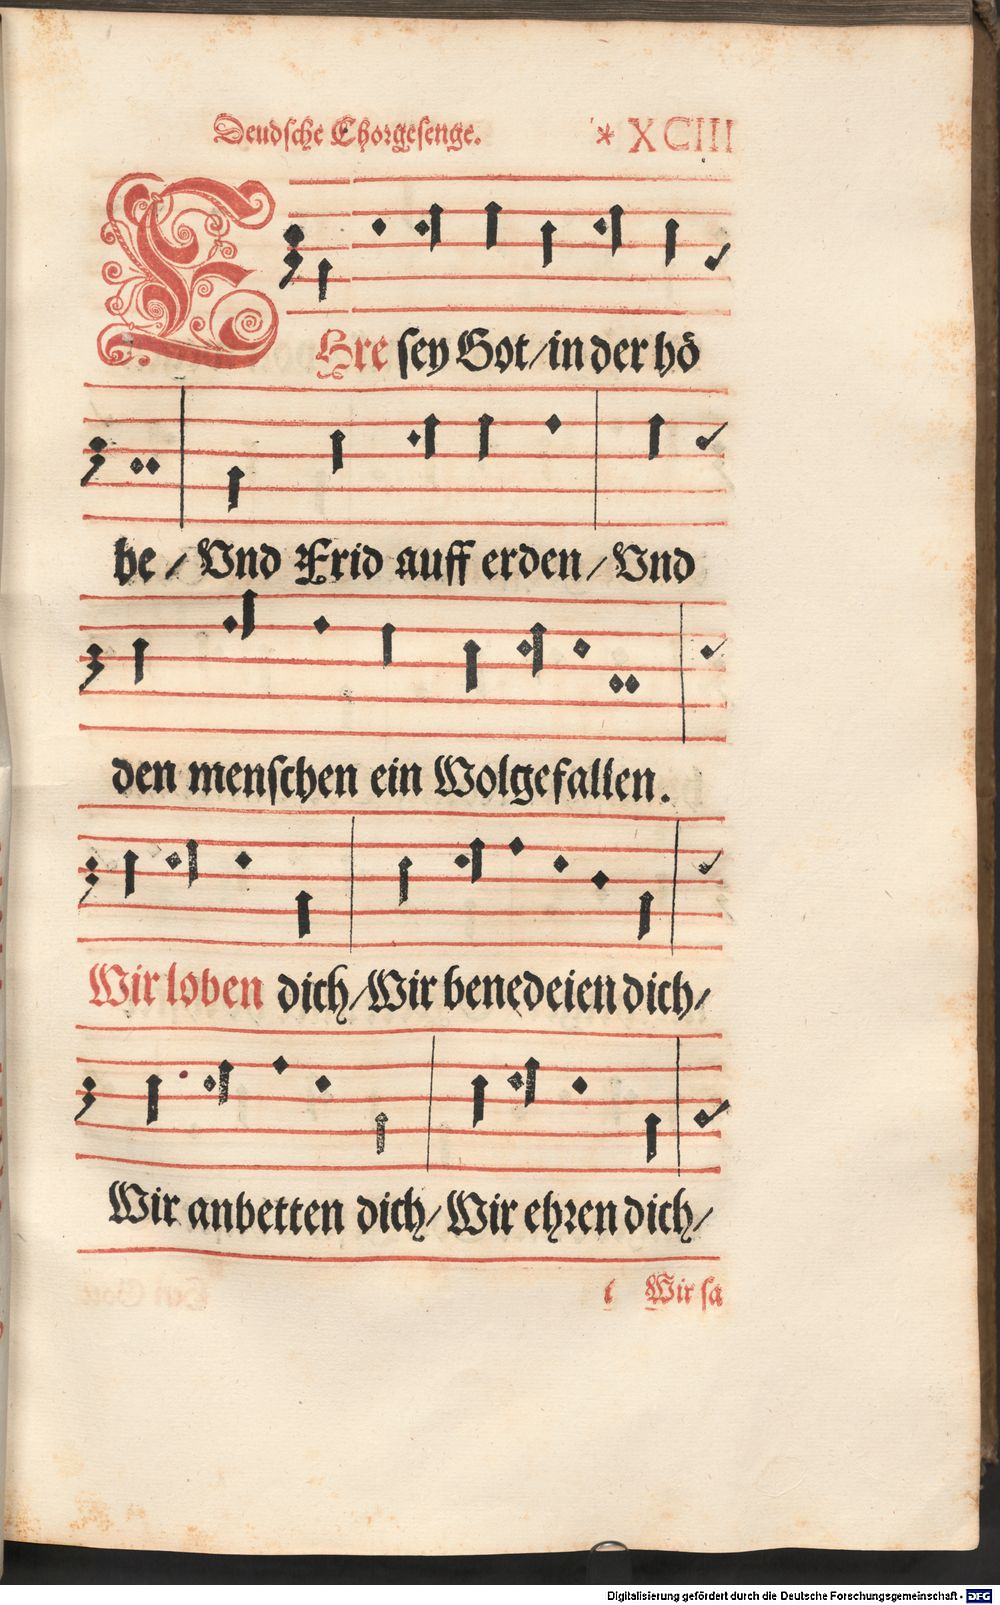 Deudsche Chorgesenge. * XCIII
EHre sey Got/in der hö
he / Vnd Frid auff erden / Vnd
den menschen ein Wolgefallen.
Wir loben dich/Wir benedeien dich/
Wir anbetten dich/Wir ehren dich/
i Wir sa
Digitalisierung gefördert durch die Deutsche Forschungsgemeinschaft - DFG